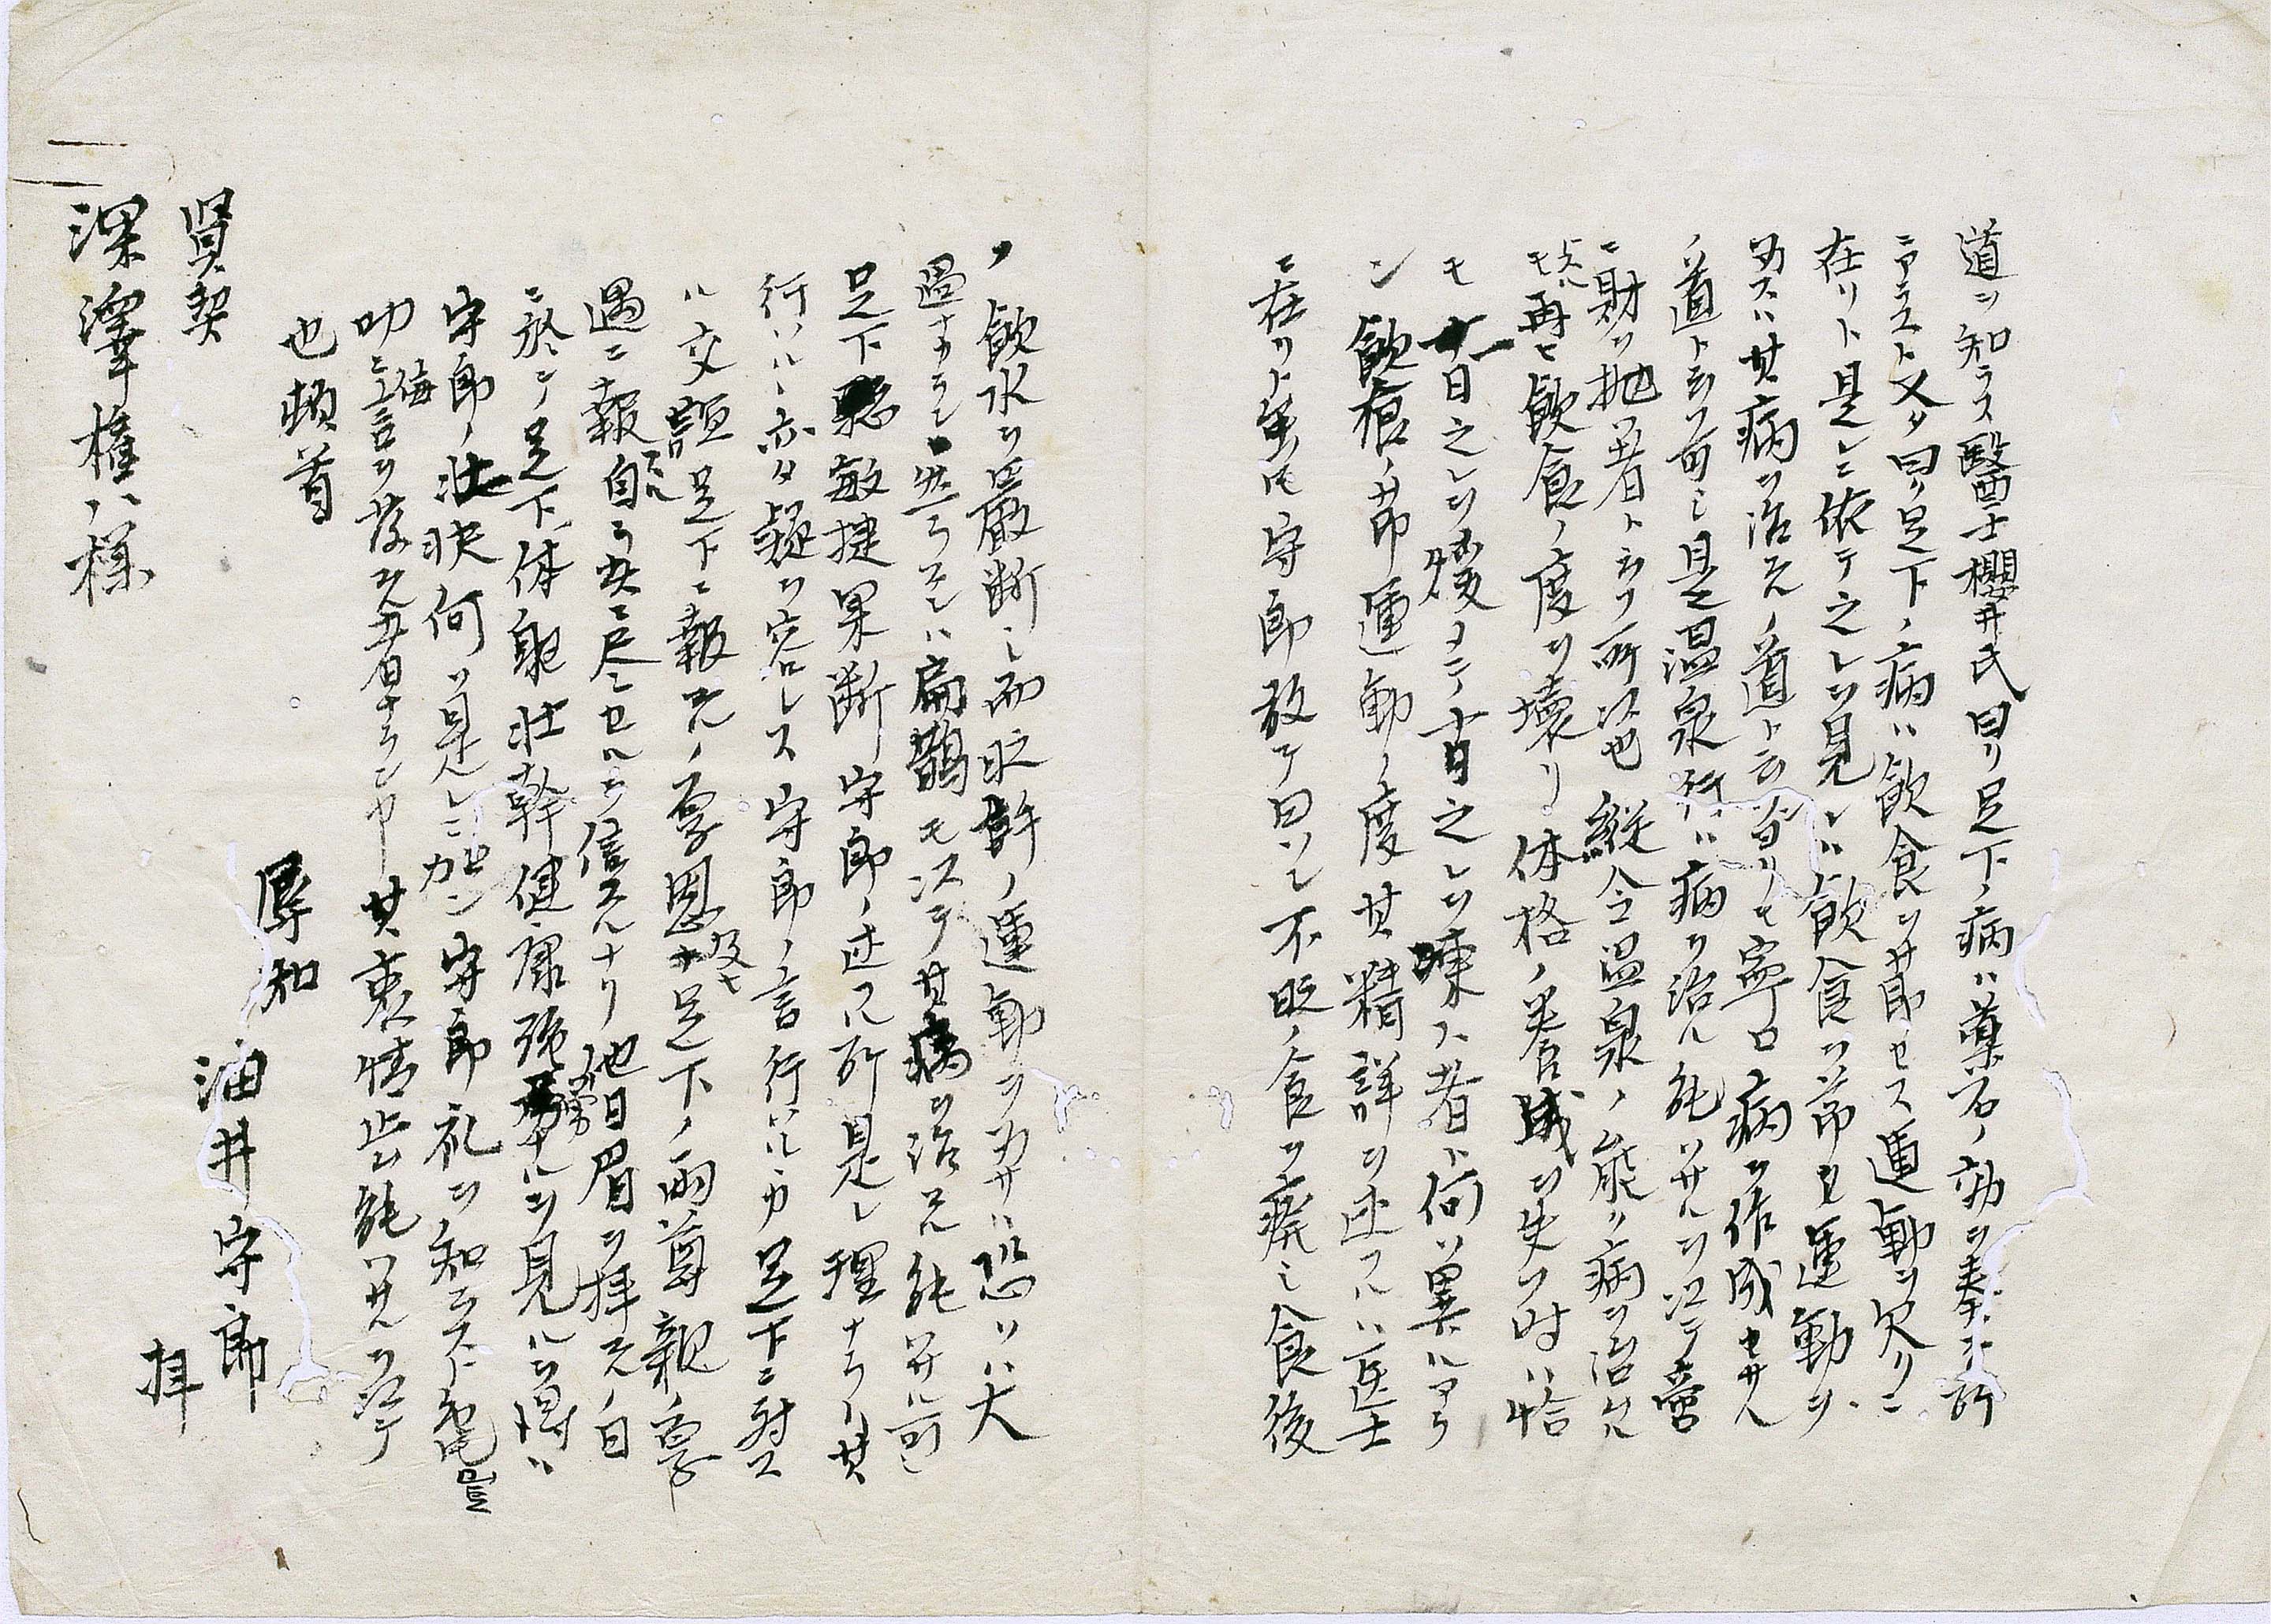 道ヲ知ラス醫士櫻井氏曰リ足下ノ病ハ薬石ノ効ヲ奏スル所
ニアラスト又タ曰リ足下ノ病ハ飲食ヲ節セス運動ヲ欠リニ
在リト是レニ依テ之レヲ見レハ飲食ヲ節シ運動ヲ
為スハ其病ヲ治スルノ道ト云可リ寧ロ病ヲ作成セサル
ノ道ト云フ可シ是之温泉行ハ病ヲ治ル能ハサルヲ以テ啻
ニ財ヲ抛ツ者ト云フ所以也縦令温泉ノ能ク病ヲ治ルスルモ
再ヒ飲食ノ度ヲ壊リ体格ノ養成ヲ失フ時ハ恰
モ一日之レヲ燠メテ十日之レヲ凍ス者ト何ソ異ルアラ
ン飲食ノ節運動ノ度其精詳ヲ述フルハ医士
ニ在リト雖モ守郎敢テ曰ン不時ノ食ヲ廃シ食後
ノ飲水ヲ嚴断シ而シテ許ノ運動ヲ為サハ恐ソハ大
過ナカラン然ラスンハ扁鵲モ以テ其病ヲ治スル能ハサル可シ
足下聡敏捷果断守郎ノ述フル所是レ理ナラハ其
行ハルヽ亦タ疑ヲ容レス守郎ノ言行ハルカ足下ニ対スル
交誼足下ニ報スルノ厚恩及ヒ足下ノ両尊親ノ厚
遇ニ報スル自ラ其ニ尽セルヲ信スルナリ他日眉ヲ拝スルノ日
ニ於テ足下ノ体躯壮幹健康強勇ナルヲ見ルヲ得ハ
守郎ノ壮快何ソ是レニ如カン守郎礼ヲ知ラスト雖豈
叨ニ侮言ヲ發スル者ナランヤ其衷情止ム能ハサルヲ以テ
也頓首
辱知 油井守郎
拝
賢契
深澤權八様